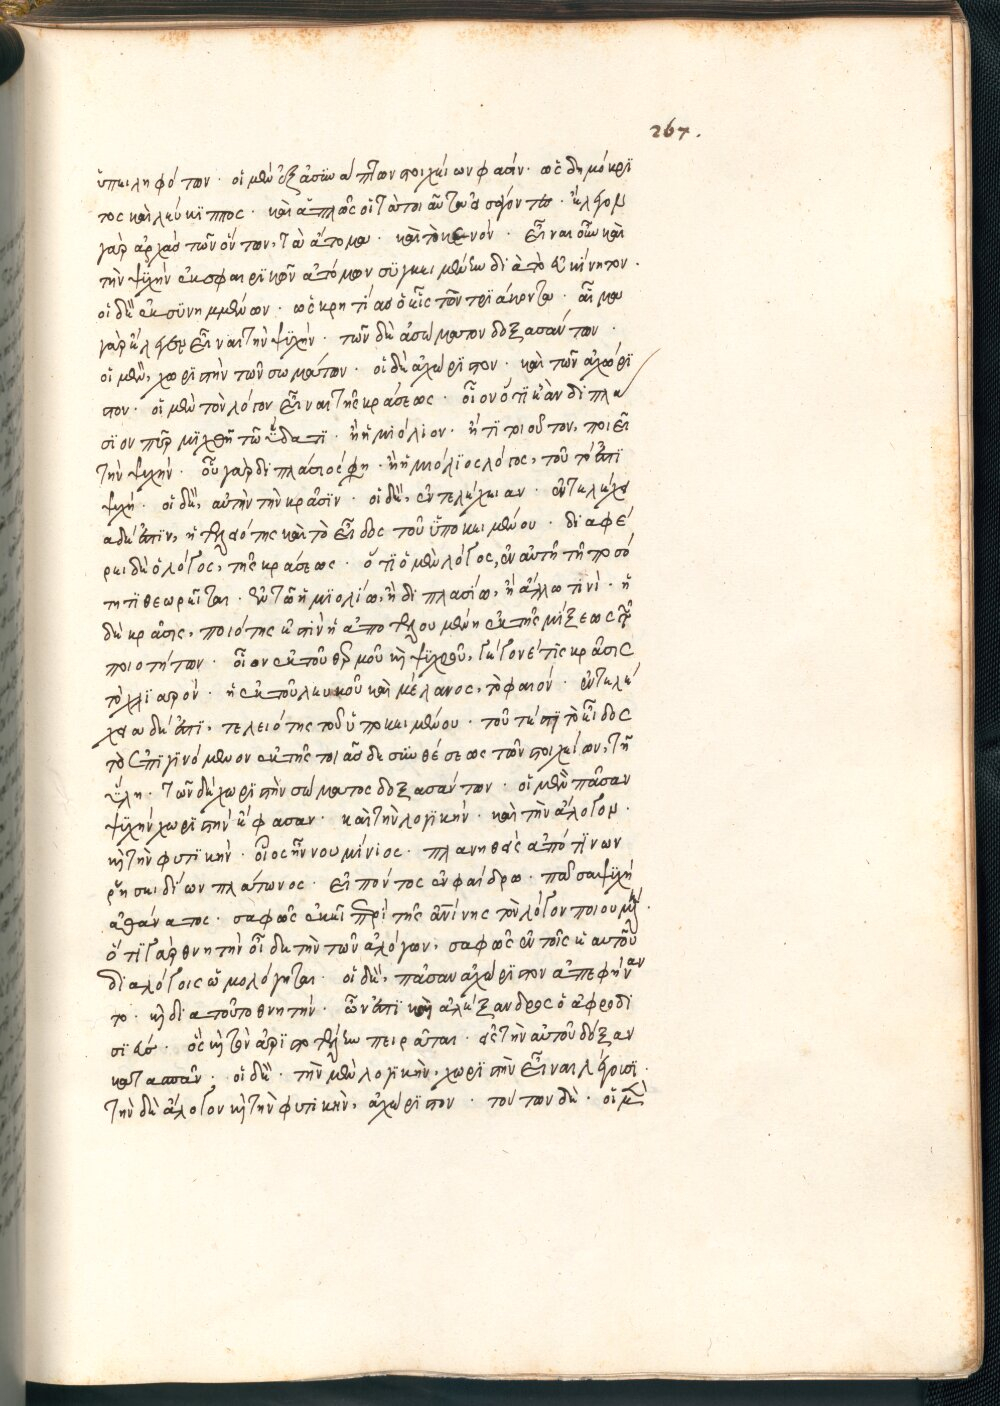 267.
ὑπειληφότων · οἱ μὲν ἐξ ἀσωμάτων στοιχείων φασίν · ὡς δημόκρι
τος καὶ λεύκιππος · καὶ ἁπλῶς οἱ τὰ
γὰρ ἀρχὰς τῶν ὄντων, τὰ ἄτομα · καὶ τὸ κενόν · εἶναι οὖν καὶ
τὴν ψυχὴν ἐκ σφαιρικῶν ἀτόμων συγκειμένην διὰ τὸ εὐκίνητον ·
οἱ δὲ ἐκ συνημμένων · ὡς κριτίας ὁ εἷς τῶν τριάκοντα · αἷμα
γὰρ ἔλεγεν εἶναι τὴν ψυχήν · τῶν δὲ ἀσώματον δοξασάντων ·
οἱ μὲν, χωριστὴν τῶν σωμάτων · οἱ δὲ ἀχώριστον · καὶ τῶν ἀχώρι
στον · οἱ μὲν τὸν λόγον εἶναι τῆς κράσεως · οἷον ὅτι κἂν διπλά
σιον πῦρ μιχθῇ τῷ ὕδατι · ἢ ἡμιόλιον · ἤ τι τοιοῦτον, ποιεῖ
τὴν ψυχήν · οὐ γὰρ διπλάσιος ἔφη · ἢ ἡμιόλιος λόγος, τοῦτό ἐστι
ψυχή · οἱ δὲ, αὐτὴν τὴν κρᾶσιν · οἱ δὲ, ἐντελέχειαν · ἐντελέχει
α δέ ἐστιν, ἡ τελειότης καὶ τὸ εἶδος τοῦ ὑποκειμένου · διαφέ
ρει δὲ ὁ λόγος, τῆς κράσεως · ὅτι ὁ μὲν λόγος, ἐν αὐτῇ τῇ ποσό
τητι θεωρεῖται · ἐν τῷ ἡμιολίῳ, ἢ διπλασίῳ, ἢ ἄλλῳ τινί · ἡ
δὲ κρᾶσις, ποιότης ἐστὶν ἡ ἀποτελουμένη ἐκ τῆς μίξεως τῶν
ποιοτήτων · οἷον ἐκ τοῦ θερμοῦ καὶ ψυχροῦ, γέγονέ τις κρᾶσις
τὸ χλιαρόν · ἢ ἐκ τοῦ λευκοῦ καὶ μέλανος, τὸ φαιόν · ἐντελέ
χεια δέ ἐστι, τελειότης τοῦ ὑποκειμένου · τουτέστι τὸ εἶδος
τὸ ἐπιγινόμενον ἐκ τῆς τοιᾶσδε συνθέσεως τῶν στοιχείων, τῇ
ὕλῃ · τῶν δὲ χωριστὴν σώματος δοξασάντων · οἱ μὲν πᾶσαν
ψυχὴν χωριστὴν ἔφασαν · καὶ τὴν λογικήν · καὶ τὴν ἄλογον ·
καὶ τὴν φυτικήν · οἷος ἦν νουμίνιος · πλανηθεὶς ἀπό τινων
ῥησειδίων πλάτωνος · εἰπόντος ἐν φαίδρῳ · πᾶσα ψυχὴ
ἀθάνατος · σαφῶς ἐκεῖ περὶ τῆς ἀν̅ίνης τὸν λόγον ποιουμέν ·
ὅτι γὰρ θνητὴν οἶδε τὴν τῶν ἀλόγων, σαφῶς ἐν τοῖς ἑαυτοῦ
διαλόγοις ὡμολόγηται · οἱ δὲ, πᾶσαν ἀχώριστον ἀπεφήναν
το · καὶ διὰ τοῦτο θνητήν · ὧν ἐστι καὶ ἀλέξανδρος ὁ ἀφροδι
σιεύς · ὃς καὶ τὸν ἀριστοτέλην πειρᾶται · εἰς τὴν αὐτοῦ δόξαν
κατασπᾶν · οἱ δὲ · τὴν μὲν λογικὴν, χωριστὴν εἶναι λέγουσι ·
τὴν δὲ ἄλογον καὶ τὴν φυτικὴν, ἀχώριστον · τούτων δὲ · οἱ μὲν